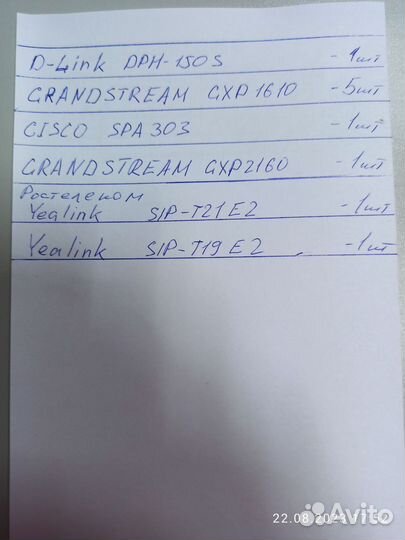 D-Link DPH-150S - 1шт
GRANDSTREAM GXP1610 - 5шт
CISCO SPA 303 - 1шт
GRANDSTREAM GXP2160 - 1шт
Ростелеком
Yealink SIP-T21 E2 - 1шт
Yealink SIP-T19 E2 - 1шт
22.08.2023 17:52
Avito